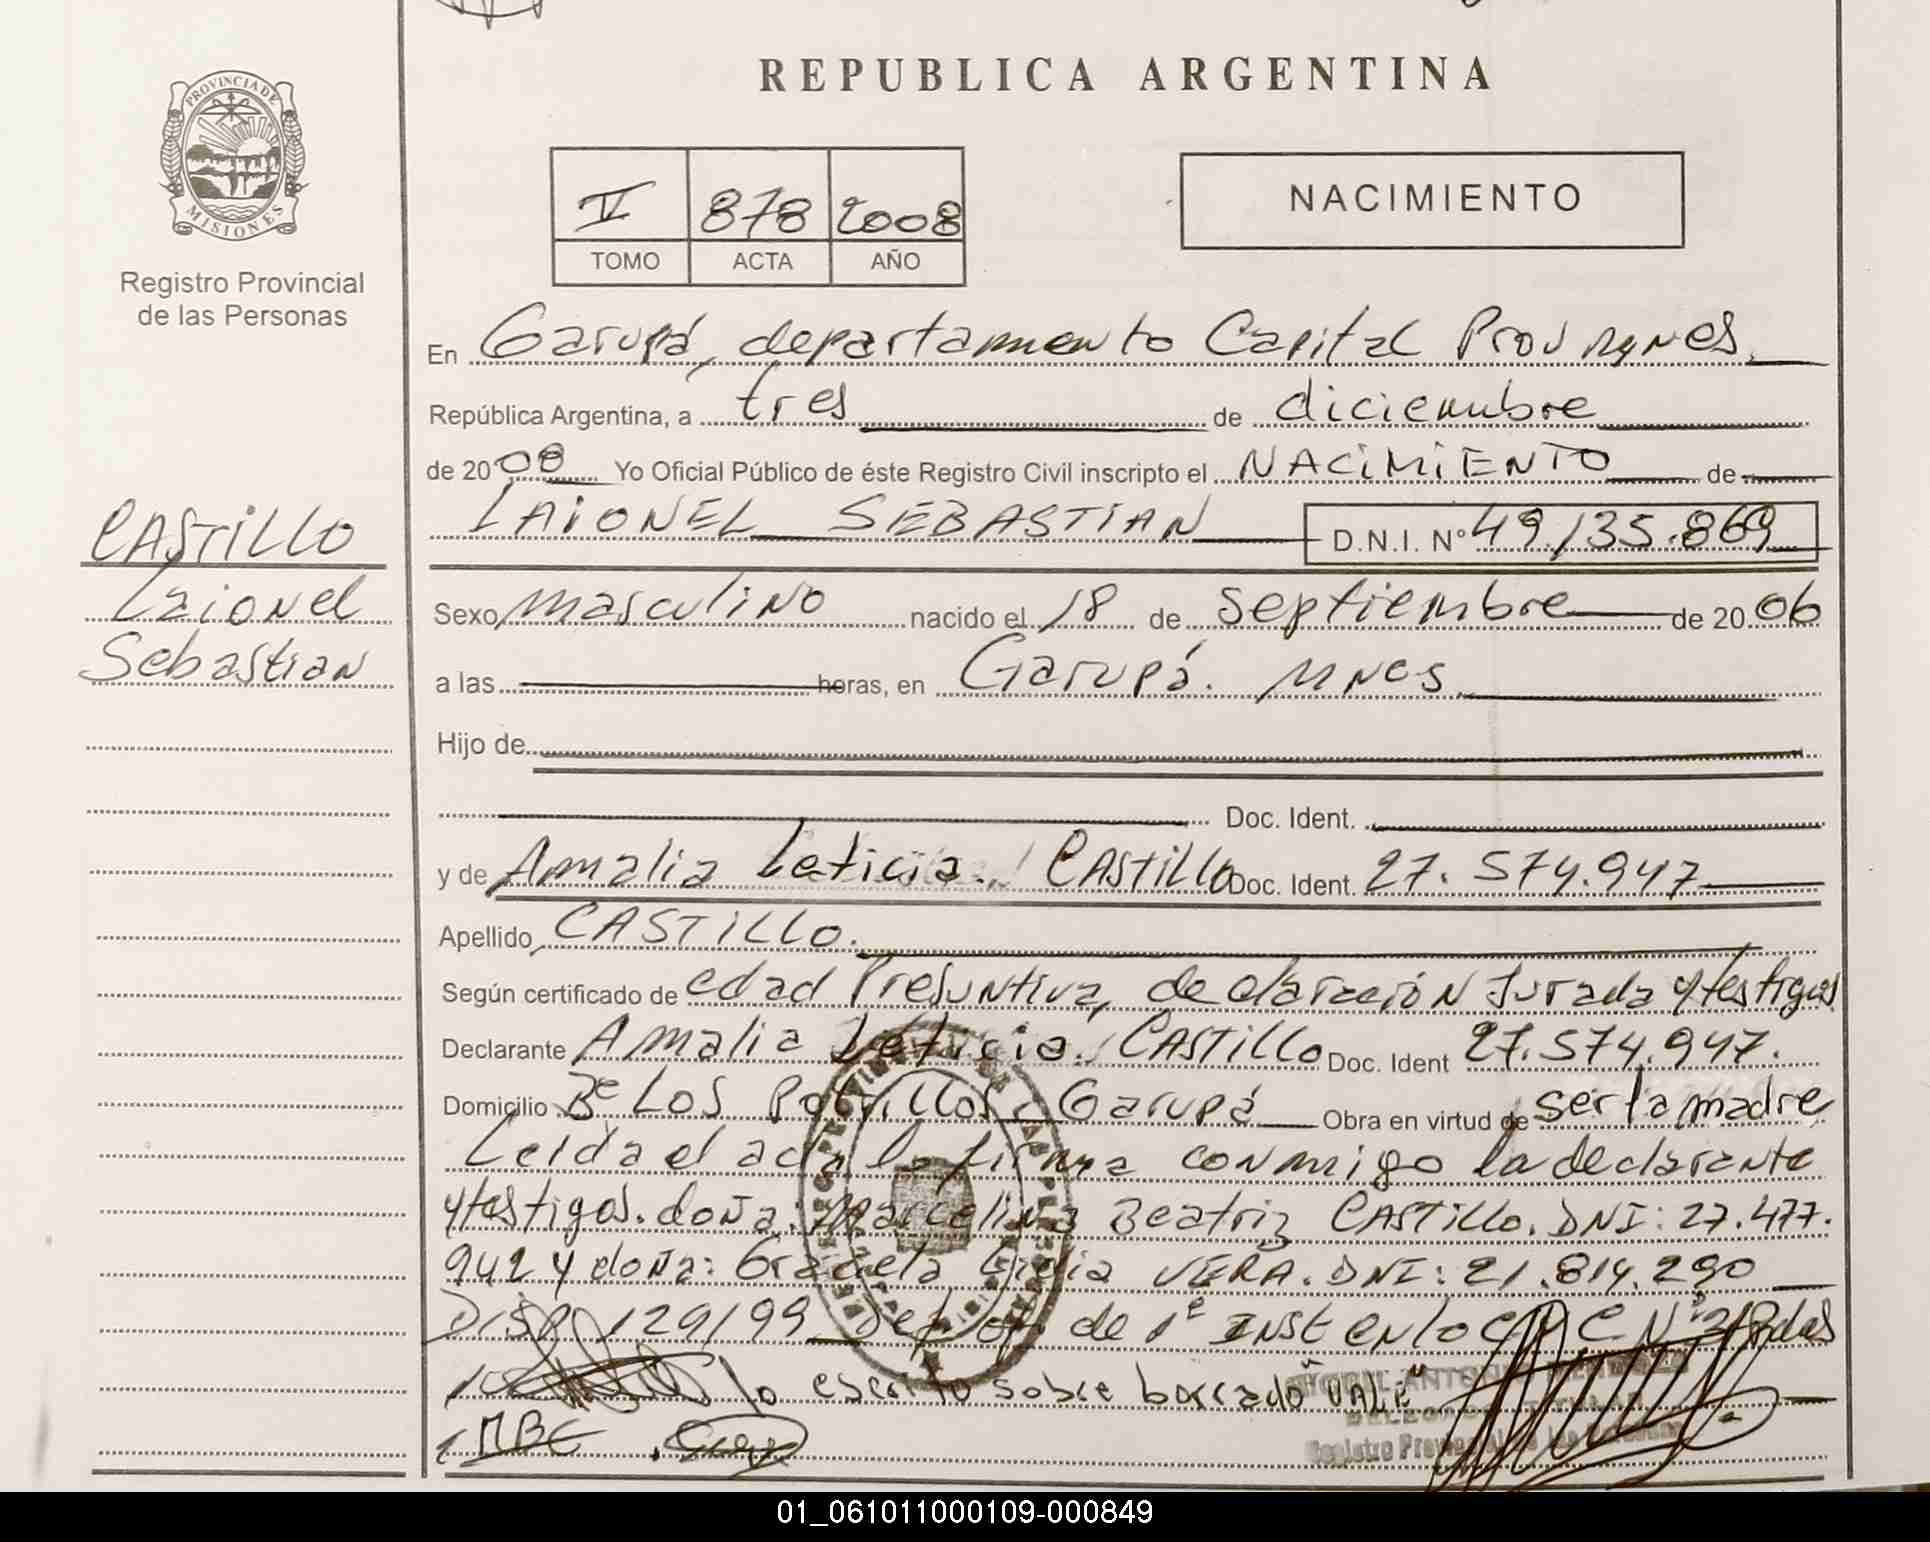 REPUBLICA ARGENTINA
PROVINCIA DE
MISIONES
Registro Provincial
de las Personas
II 878 2008
TOMO ACTA AÑO
NACIMIENTO
En Garupá, departamento Capital Prov
República Argentina, a tres de diciembre
de 2008 Yo Oficial Público de éste Registro Civil inscripto el NACIMIENTO de
LAIONEL SEBASTIAN D.N.I. N° 49.135.869
CASTILLO
Laionel
Sebastian
Sexo masculino nacido el 18 de septiembre de 2006
a las horas, en Garupá. Mnes
Hijo de
Doc. Ident.
y de Amalia Leticia CASTILLO Doc. Ident. 27.574.947
Apellido CASTILLO.
Según certificado de edad Presuntiva, declaración Jurada y testigos
Declarante Amalia Leticia CASTILLO Doc. Ident 27.574.947.
Domicilio Bº Los Potrillos - Garupá Obra en virtud de ser la madre
Leida el acta la firma conmigo la declarante
y testigos. doña: Marcelina Beatriz CASTILLO. DNI: 27.477.
942 y doña: Graciela VERA. DNI: 21.814.290
Disp 129/99 de 1º Inst en lo C Nº
lo escrito sobre borrado "VALE"
MBC
Registro Provincial de las Personas
01_061011000109-000849